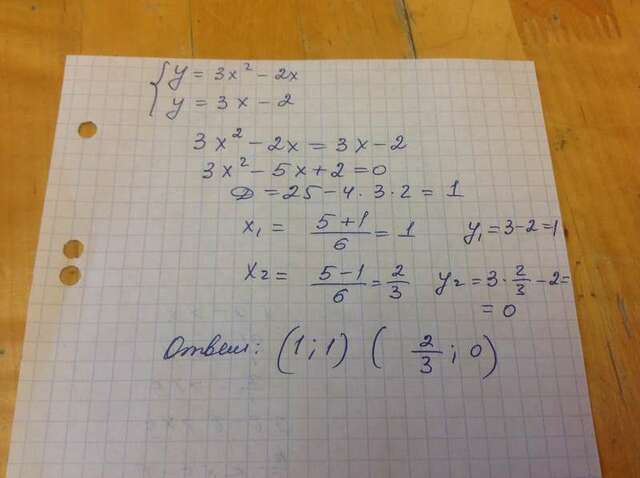 y = 3x² − 2x
y = 3x − 2
3x² − 2x = 3x − 2
3x² − 5x + 2 = 0
D = 25 − 4 · 3 · 2 = 1
x₁ = (5+1)/6 = 1 y₁ = 3−2 = 1
x₂ = (5−1)/6 = 2/3 y₂ = 3 · 2/3 − 2 =
= 0
Ответ: (1; 1) (2/3; 0)